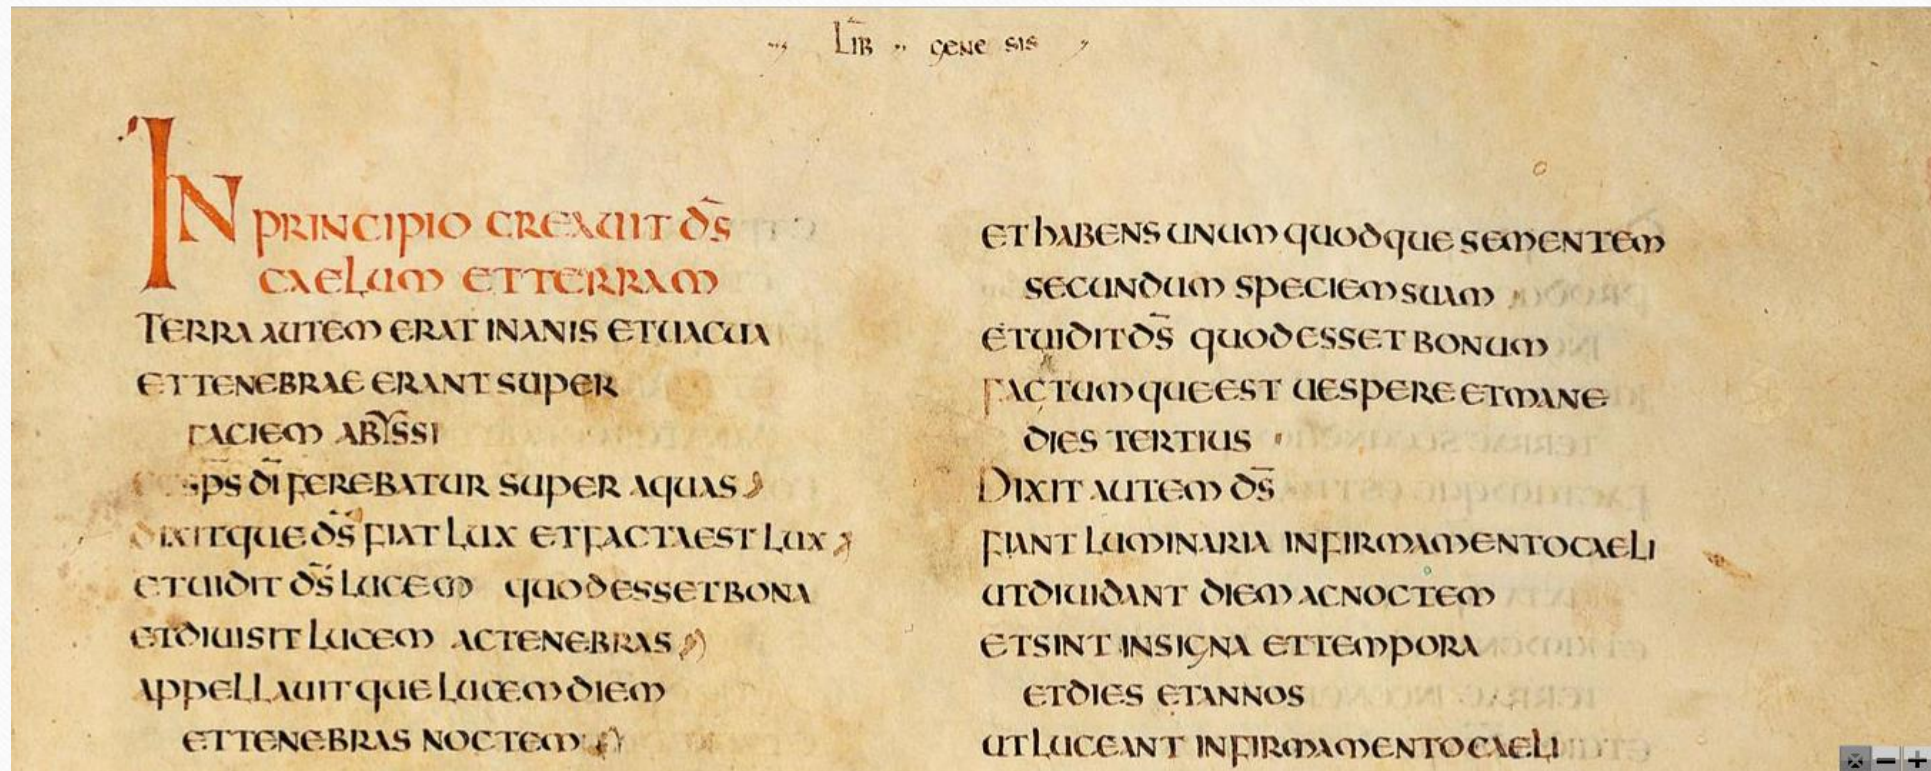 LIB GENESIS
IN PRINCIPIO CREAUIT D̄S
CAELUM ET TERRAM
TERRA AUTEM ERAT INANIS ET UACUA
ET TENEBRAE ERANT SUPER
FACIEM ABYSSI
SP̄S D̄I FEREBATUR SUPER AQUAS
DIXITQUE D̄S FIAT LUX ET FACTA EST LUX
ET UIDIT D̄S LUCEM QUOD ESSET BONA
ET DIUISIT LUCEM AC TENEBRAS
APPELLAUITQUE LUCEM DIEM
ET TENEBRAS NOCTEM
ET HABENS UNUMQUODQUE SEMENTEM
SECUNDUM SPECIEM SUAM
ET UIDIT D̄S QUOD ESSET BONUM
FACTUMQUE EST UESPERE ET MANE
DIES TERTIUS
DIXIT AUTEM D̄S
FIANT LUMINARIA IN FIRMAMENTO CAELI
UT DIUIDANT DIEM AC NOCTEM
ET SINT IN SIGNA ET TEMPORA
ET DIES ET ANNOS
UT LUCEANT IN FIRMAMENTO CAELI